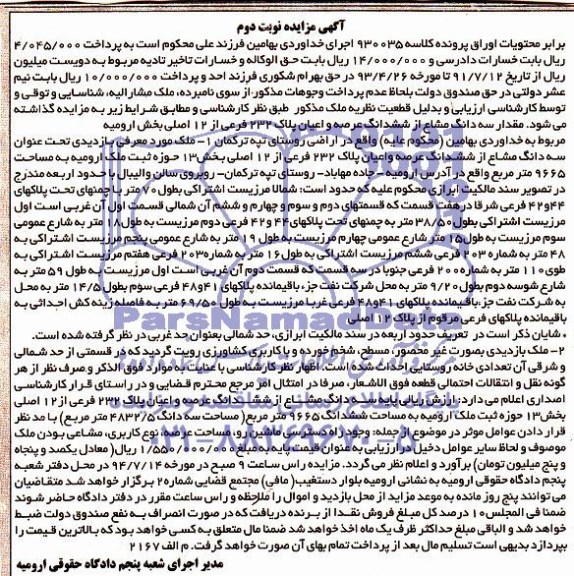 آگهی مزایده نوبت دوم
برابر محتویات اوراق پرونده کلاسه ۹۳۰۰۳۵ اجرای خداوردی بهامین فرزند علی محکوم است به پرداخت ۴/۰۴۵/۰۰۰
ریال بابت خسارات دادرسی و ۱۴/۰۰۰/۰۰۰ ریال بابت حق الوکاله و خسارات تاخیر تادیه مربوط به دویست میلیون
ریال از تاریخ ۹۱/۷/۱۲ تا مورخه ۹۳/۴/۲۶ در حق بهرام شکوری فرزند احد و پرداخت ۱۰/۰۰۰/۰۰۰ ریال بابت نیم
عشر دولتی در حق صندوق دولت بلحاظ عدم پرداخت وجوهات مذکور از سوی نامبرده، ملک مشارالیه، شناسایی و توقی و
توسط کارشناسی ارزیابی و بدلیل قطعیت نظریه ملک مذکور طبق نظر کارشناسی و مطابق شرایط زیر به مزایده گذاشته
می شود. مقدار سه دانگ مشاع از ششدانگ عرصه و اعیان پلاک ۲۳۲ فرعی از ۱۲ اصلی بخش ارومیه
مربوط به خداوردی بهامین (محکوم علیه) واقع در اراضی روستای تپه ترکمان ۱- ملک مورد معرفی و بازدیدی تحت عنوان
سه دانگ مشاع از ششدانگ عرصه واعیان پلاک ۲۳۲ فرعی از ۱۲ اصلی بخش۱۳ حوزه ثبت ملک ارومیه به مساحت
۹۶۶۵ متر مربع واقع در آدرس ارومیه- جاده مهاباد- روستای تپه ترکمان- روبروی زمین والیبال با حدود اربعه مندرج
در تصویر سند مالکیت ابرازی محکوم علیه که محدود است: شمالا مرزیست اشتراکی بطول ۷۰ متر با چمنهای تحت پلاکهای
۴۴و۴۲ فرعی شرقا در هفت قسمت که قسمتهای دوم و سوم و چهارم و ششم آن شمالی قسمت اول آن غربی است اول
مرزیست اشتراکی بطول ۳۸/۵۰ متر به چمنهای تحت پلاکهای۴۴ و۴۲ فرعی دوم مرزیست به طول ۱۰ متر به شارع عمومی
سوم مرزیست به طول۱۵ متر شارع عمومی چهارم مرزیست به طول ۱۹ متر به شارع عمومی پنجم مرزیست اشتراکی به
۴۸ متر به شماره ۲۰۳ فرعی ششم مرزیست اشتراکی به طول۱۶ متر به شماره۲۰۳ فرعی هفتم مرزیست اشتراکی به
طوی ۱۱۰ متر به شماره۲۰۰۰ فرعی جنوبا در سه قسمت که قسمت دوم آن غربی است اول مرزیست به طول ۵۹ متر به
شارع شوسه دوم بطول ۹/۲۰ متر به محل شرکت نفت جز، باقیمانده پلاکهای ۴۱و۴۸ فرعی سوم بطول ۱۴/۵ متر به محل
به شرکت نفت جز،باقیمانده پلاکهای ۴۱و۴۸ فرعی غربا مرزیست به طول ۶۹/۵۰ متر به فاصله زینه کش احداثی به
باقیمانده پلاکهای فرعی مرقوم از پلاک ۱۲ اصلی
• شایان ذکر است در تعریف حدود اربعه در سند مالکیت ابرازی، حد شمالی بعنوان حد غربی در نظر گرفته شده است.
۲- ملک بازدیدی بصورت غیر محصور، مسطح، شخم خورده و با کاربری کشاورزی رویت گردید که در قسمتی از حد شمالی
و شرقی آن تعدادی خانه روستایی احداث شده است. اظهار نظر کارشناسی با عنایت به موارد فوق الذکر و صرف نظر از هر
گونه نقل و انتقالات احتمالی قطعه فوق الاشعار، صرفا در امتثال امر مرجع محترم قضایی و در راستای قرار کارشناسی
اصداری اعلام می دارد: ارزش ریالی پایه سه دانگ مشاع از ششدانگ عرصه و اعیان پلاک ۲۳۲ فرعی از ۱۲ اصلی
بخش۱۳ حوزه ثبت ملک ارومیه به مساحت ششدانگ ۹۶۶۵ متر مربع (مساحت سه دانگ ۴۸۳۲/۵ متر مربع) با مد نظر
قرار دادن عوامل موثر در موضوع از جمله: وجود راه دسترسی ماشین رو، مساحت عرصه، نوع کاربری، مشاعی بودن ملک
موصوف و لحاظ سایر عوامل دخیل در ارزیابی به عنوان قیمت پایه به مبلغ ۱/۵۵۰/۰۰۰/۰۰۰ ریال( معادل یکصد و پنجاه
و پنج میلیون تومان) برآورد و اعلام نظر می گردد. مزایده راس ساعت ۹ صبح در مورخه ۹۴/۷/۱۴ در محل دفتر شعبه
پنجم دادگاه حقوقی ارومیه به نشانی ارومیه بلوار دستغیب( مافی) مجتمع قضایی شماره۲ برگزار خواهد شد متقاضیان
می توانند پنج روز مانده به موعد مزایده از محل بازدید و اموال را ملاحظه و راس ساعت مقرر در دفتر دادگاه حاضر شوند
ضمنا فی المجلس ۱۰ درصد کل مبلغ فروش نقدا از برنده دریافت که در صورت انصراف به نفع صندوق دولت ضبط
خواهد شد و الباقی مبلغ حداکثر ظرف یک ماه اخذ خواهد شد ضمنا مال متعلق به کسی خواهد بود که بالاترین قیمت را
بپردازد بدیهی است تسلیم مال بعد از پرداخت تمام بهای آن صورت خواهد گرفت. م الف ۲۱۶۷
مدیر اجرای شعبه پنجم دادگاه حقوقی ارومیه
ParsNamadData
۰۲۱-۸۸۳۴۹۶۷۰-۵